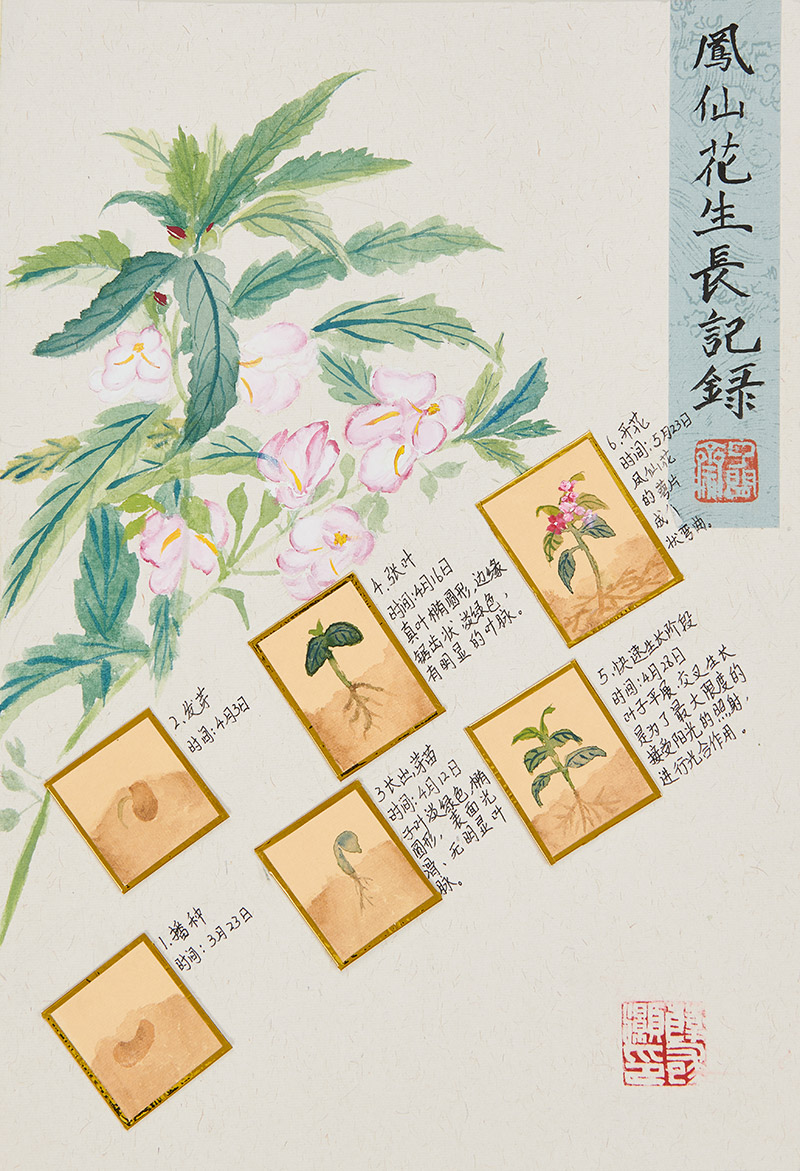 鳳仙花生長記録
1.播种
时间:3月23日
2.发芽
时间:4月3日
3.长出芽苗
时间:4月12日
子叶淡绿色,椭
圆形,表面光
滑、无明显叶
脉。
4.张叶
时间:4月16日
真叶椭圆形,边缘
锯齿状,淡绿色,
有明显的叶脉。
5.快速生长阶段
时间:4月28日
叶子平展,交叉生长
是为了最大限度的
接受阳光的照射,
进行光合作用。
6.开花
时间:5月23日
凤仙花
的萼片
成
状弯曲。